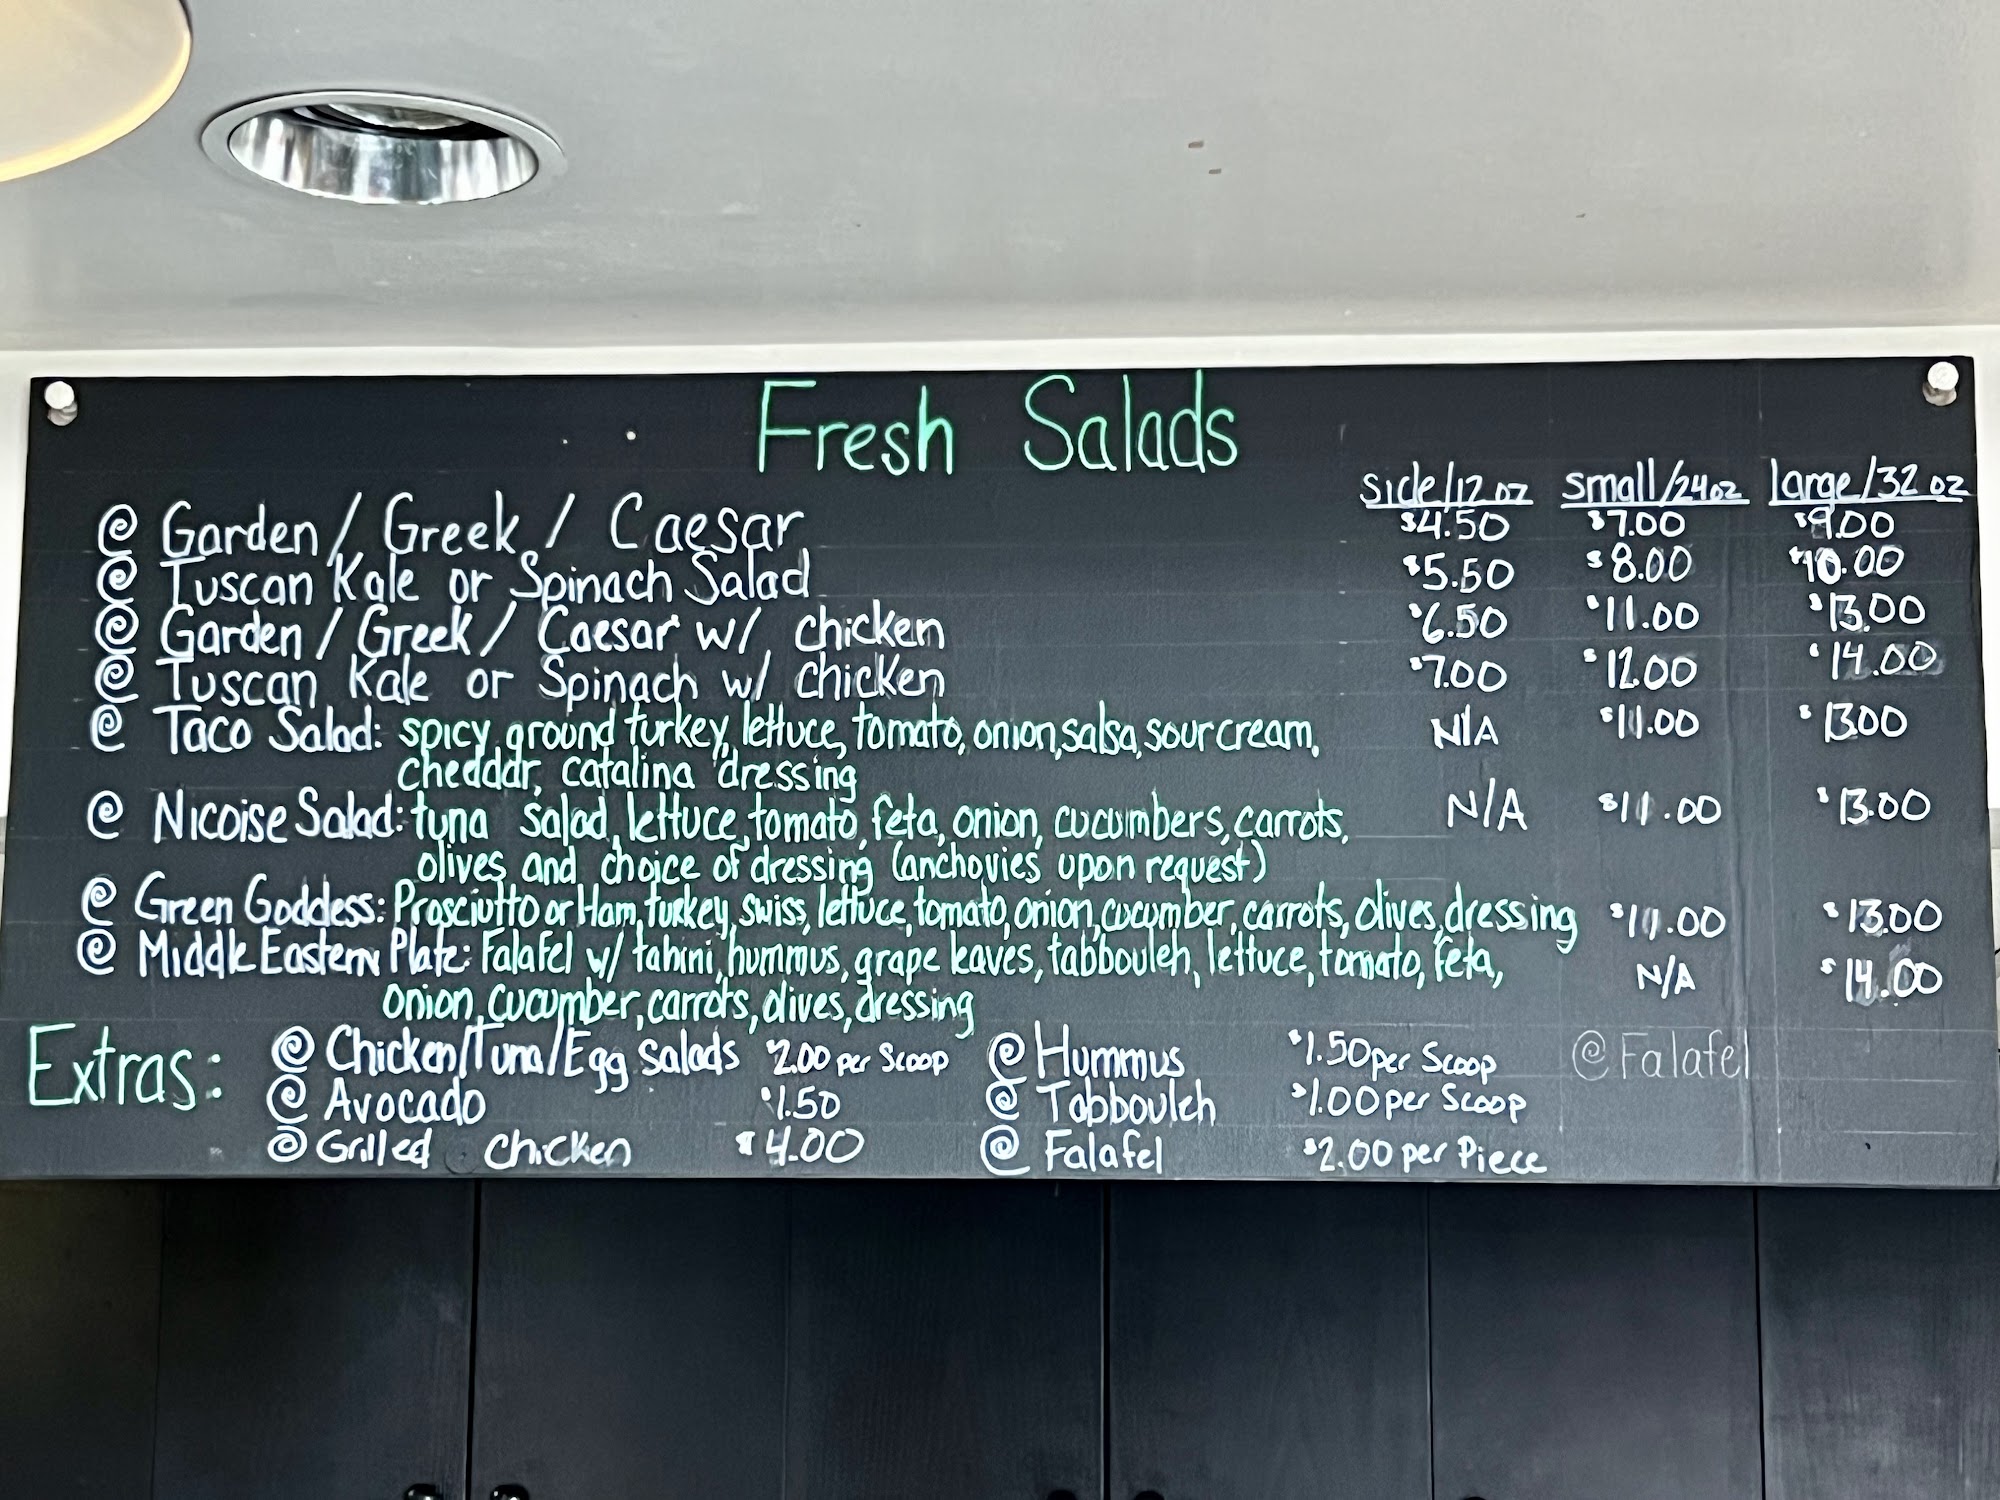 Fresh Salads
side/12oz small/24oz large/32oz
@ Garden / Greek / Caesar $4.50 $7.00 $9.00
@ Tuscan Kale or Spinach Salad $5.50 $8.00 $10.00
@ Garden / Greek / Caesar w/ chicken $6.50 $11.00 $13.00
@ Tuscan Kale or Spinach w/ chicken $7.00 $12.00 $14.00
@ Taco Salad: spicy ground turkey, lettuce, tomato, onion, salsa, sour cream, N/A $11.00 $13.00
cheddar, catalina dressing
@ Nicoise Salad: tuna salad, lettuce, tomato, feta, onion, cucumbers, carrots, N/A $11.00 $13.00
olives and choice of dressing (anchovies upon request)
@ Green Goddess: Prosciutto or Ham, turkey, swiss, lettuce, tomato, onion, cucumber, carrots, olives, dressing $11.00 $13.00
@ Middle Eastern Plate: Falafel w/ tahini, hummus, grape leaves, tabbouleh, lettuce, tomato, feta, N/A $14.00
onion, cucumber, carrots, olives, dressing
Extras: @ Chicken/Tuna/Egg Salads $2.00 per Scoop @ Hummus $1.50 per Scoop @ Falafel
@ Avocado $1.50 @ Tabbouleh $1.00 per Scoop
@ Grilled chicken $4.00 @ Falafel $2.00 per Piece